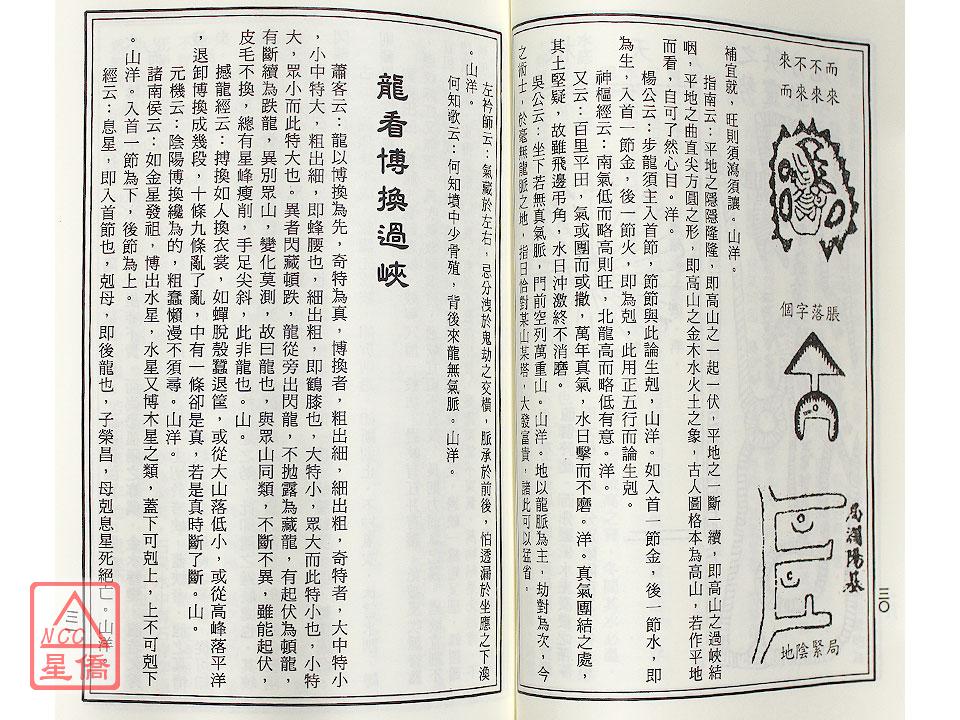 三〇
而不不來
來來來而
個字落脹
地陰緊局
補宜就，旺則須瀉須讓。山洋。
指南云：平地之隱隱隆隆，即高山之一起一伏，平地之一斷一續，即高山之過峽結
咽，平地之曲直尖方圓之形，即高山之金木水火土之象，古人圖格本為高山，若作平地
而看，自可了然心目。洋。
楊公云：步龍須主入首節，節節與此論生剋，山洋。如入首一節金，後一節水，即
為生，入首一節金，後一節火，即為剋，此用正五行而論生剋。
神樞經云：南氣低而略高則旺，北龍高而略低有意。洋。
又云：百里平田，氣或團而或撒，萬年真氣，水日擊而不磨。洋。真氣團結之處，
其土堅疑，故雖飛邊弔角，水日沖激終不消磨。
吳公云：坐下若無真氣脈，門前空列萬重山。山洋。地以龍脈為主，劫對為次，今
之術士，於毫無龍脈之地，指日恰對某山某塔，大發富貴，諸此可以猛省。
左衿師云：氣藏於左右，忌分洩於鬼劫之交橫，脈承於前後，怕透漏於坐應之下渙
。山洋。
何知歌云：何知墳中少骨殖，背後來龍無氣脈。山洋。
龍看博換過峽
蕭客云：龍以博換為先，奇特為真，博換者，粗出細，細出粗，奇特者，大中特小
，小中特大，粗出細，即蜂腰也，細出粗，即鶴膝也，大特小，眾大而此特小也，小特
大，眾小而此特大也。異者閃藏頓跌，龍從旁出閃龍，不拋露為藏龍，有起伏為頓龍，
有斷續為跌龍，異別眾山，變化莫測，故曰龍也，與眾山同類，不斷不異，雖能起伏，
皮毛不換，總有星峰瘦削，手足尖斜，此非龍也。山。
撼龍經云：摶換如人換衣裳，如蟬脫殼蠶退筐，或從大山落低小，或從高峰落平洋
，退卸博換成幾段，十條九條亂了亂，中有一條卻是真，若是真時斷了斷。山。
元機云：陰陽博換纔為的，粗蠢懶漫不須尋。山洋。
諸南侯云：如金星發祖，博出水星，水星又博木星之類，蓋下可剋上，上不可剋下
。山洋。入首一節為下，後節為上。
經云：息星，即入首節也，剋母，即後龍也，子榮昌，母剋息星死絕亡。山洋
三
NCC
星僑